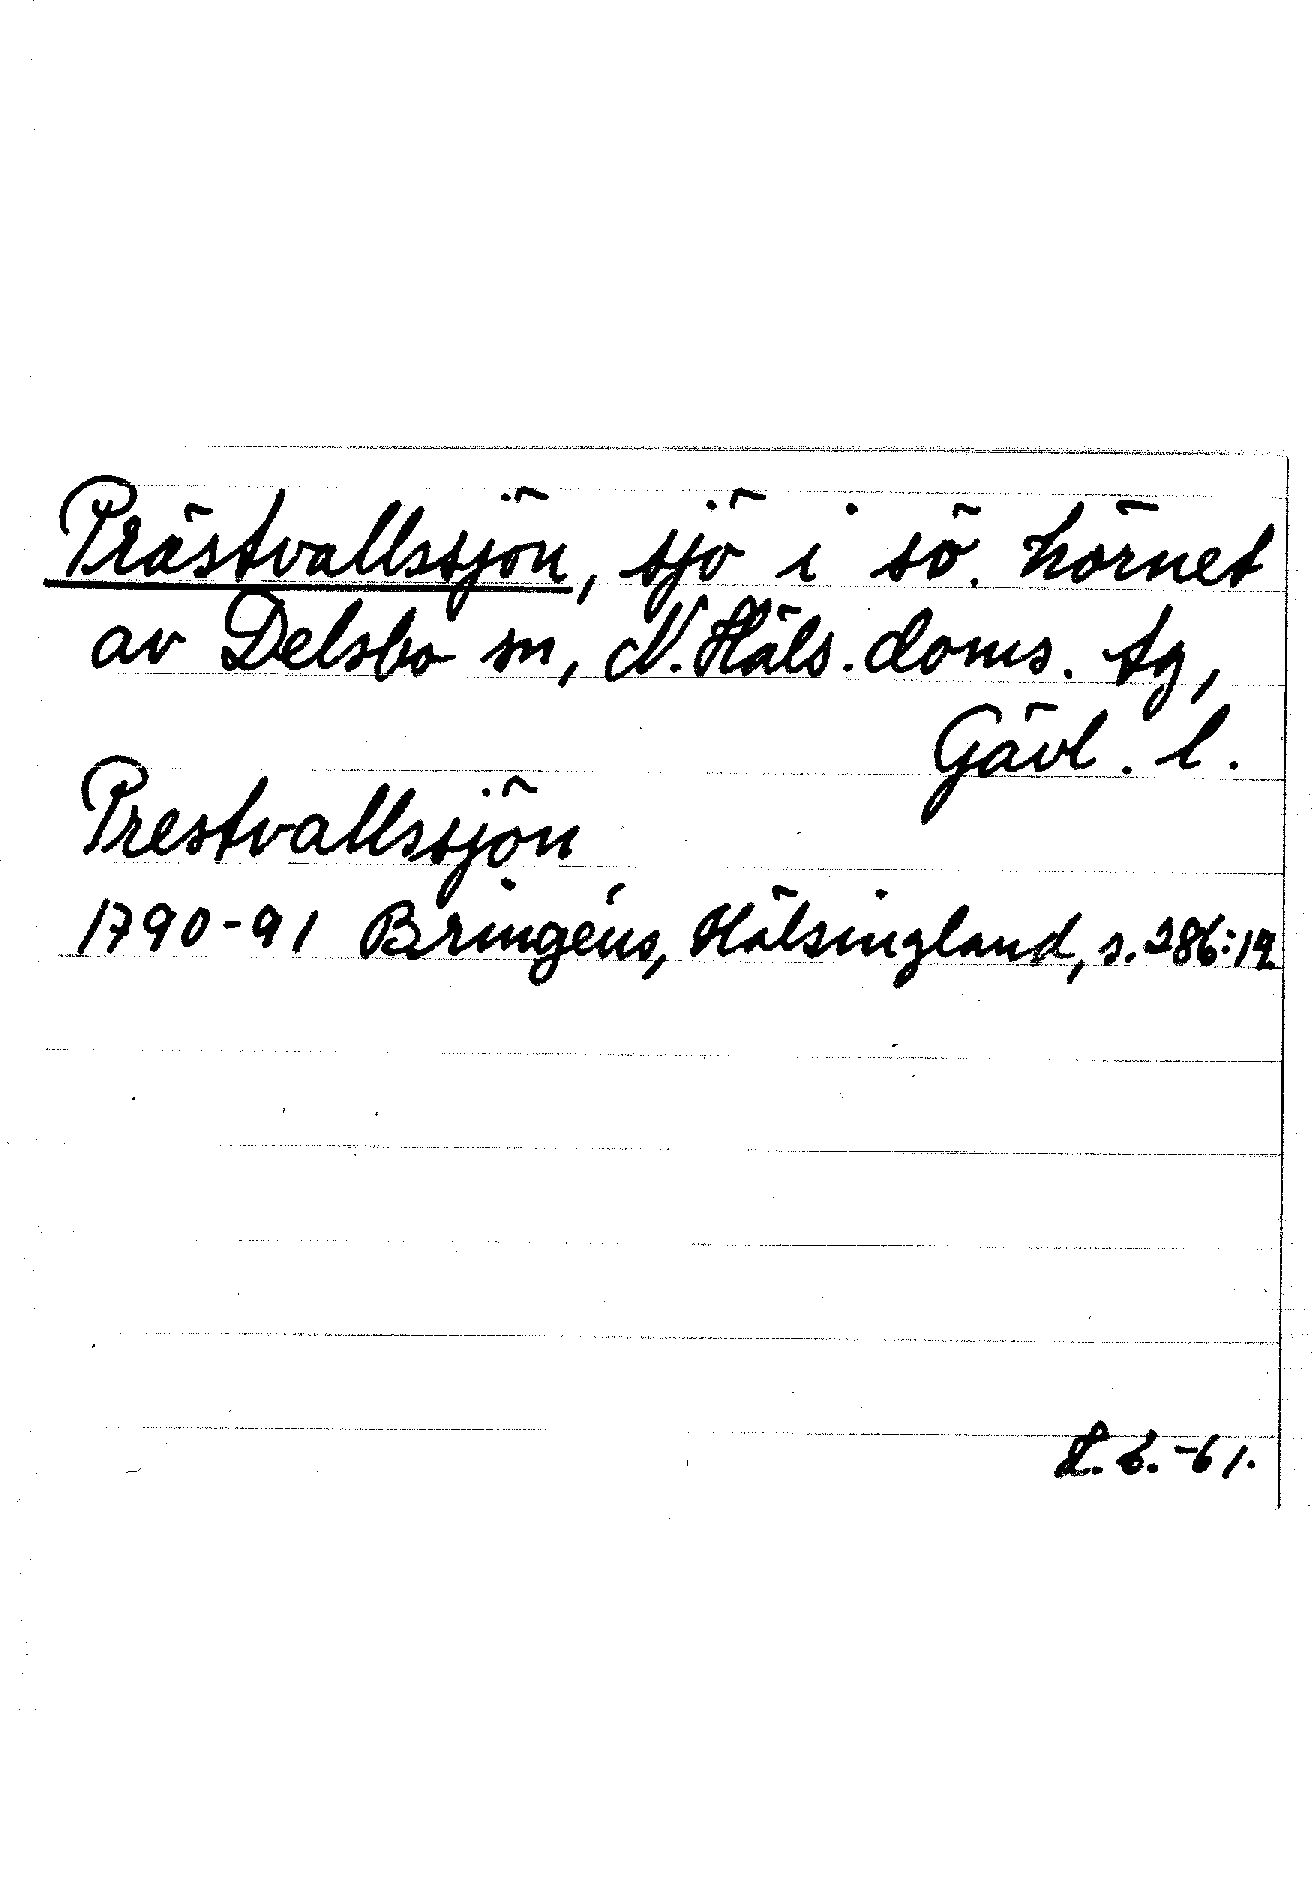 Prästvallssjön, sjö i sö. hörnet
av Delsbo sn, N. Häls. doms. tg,
Gävl. l.
Prestvallssjön
1790-91 Bringéus, Hälsingland, s. 286:
-61.